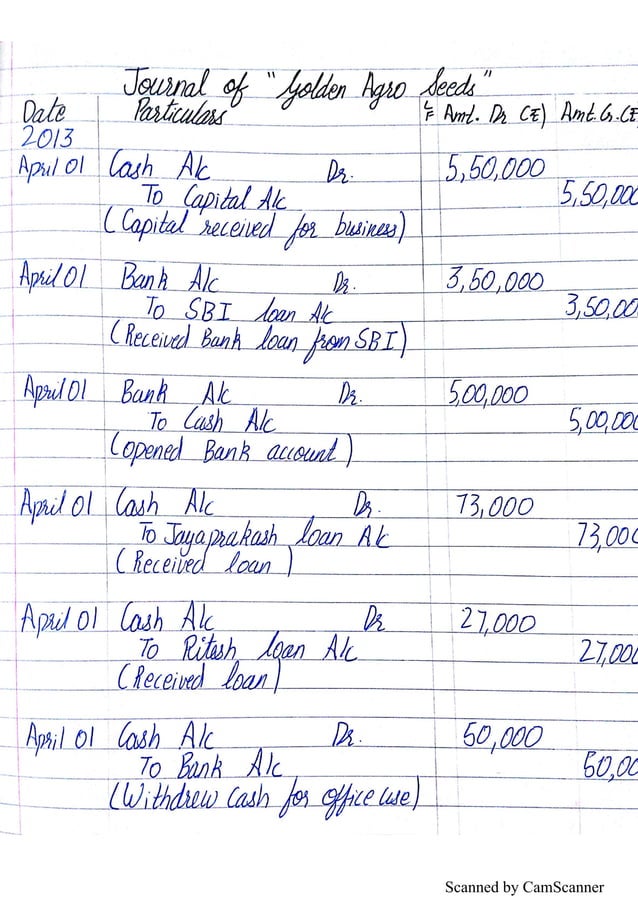 Journal of "Golden Agro Seeds"
Date Particulars LF Amt. Dr (₹) Amt. Cr. (₹
2013
April 01 Cash A/c Dr. 5,50,000
To Capital A/c 5,50,000
(Capital received for business)
April 01 Bank A/c Dr. 3,50,000
To SBI loan A/c 3,50,00
(Received Bank loan from SBI)
April 01 Bank A/c Dr. 5,00,000
To Cash A/c 5,00,000
(opened Bank account)
April 01 Cash A/c Dr. 73,000
To Jayaprakash loan A/c 73,000
(Received loan)
April 01 Cash A/c Dr 27,000
To Ritesh loan A/c 27,000
(Received loan)
April 01 Cash A/c Dr. 50,000
To Bank A/c 50,00
(Withdrew Cash for office use)
Scanned by CamScanner